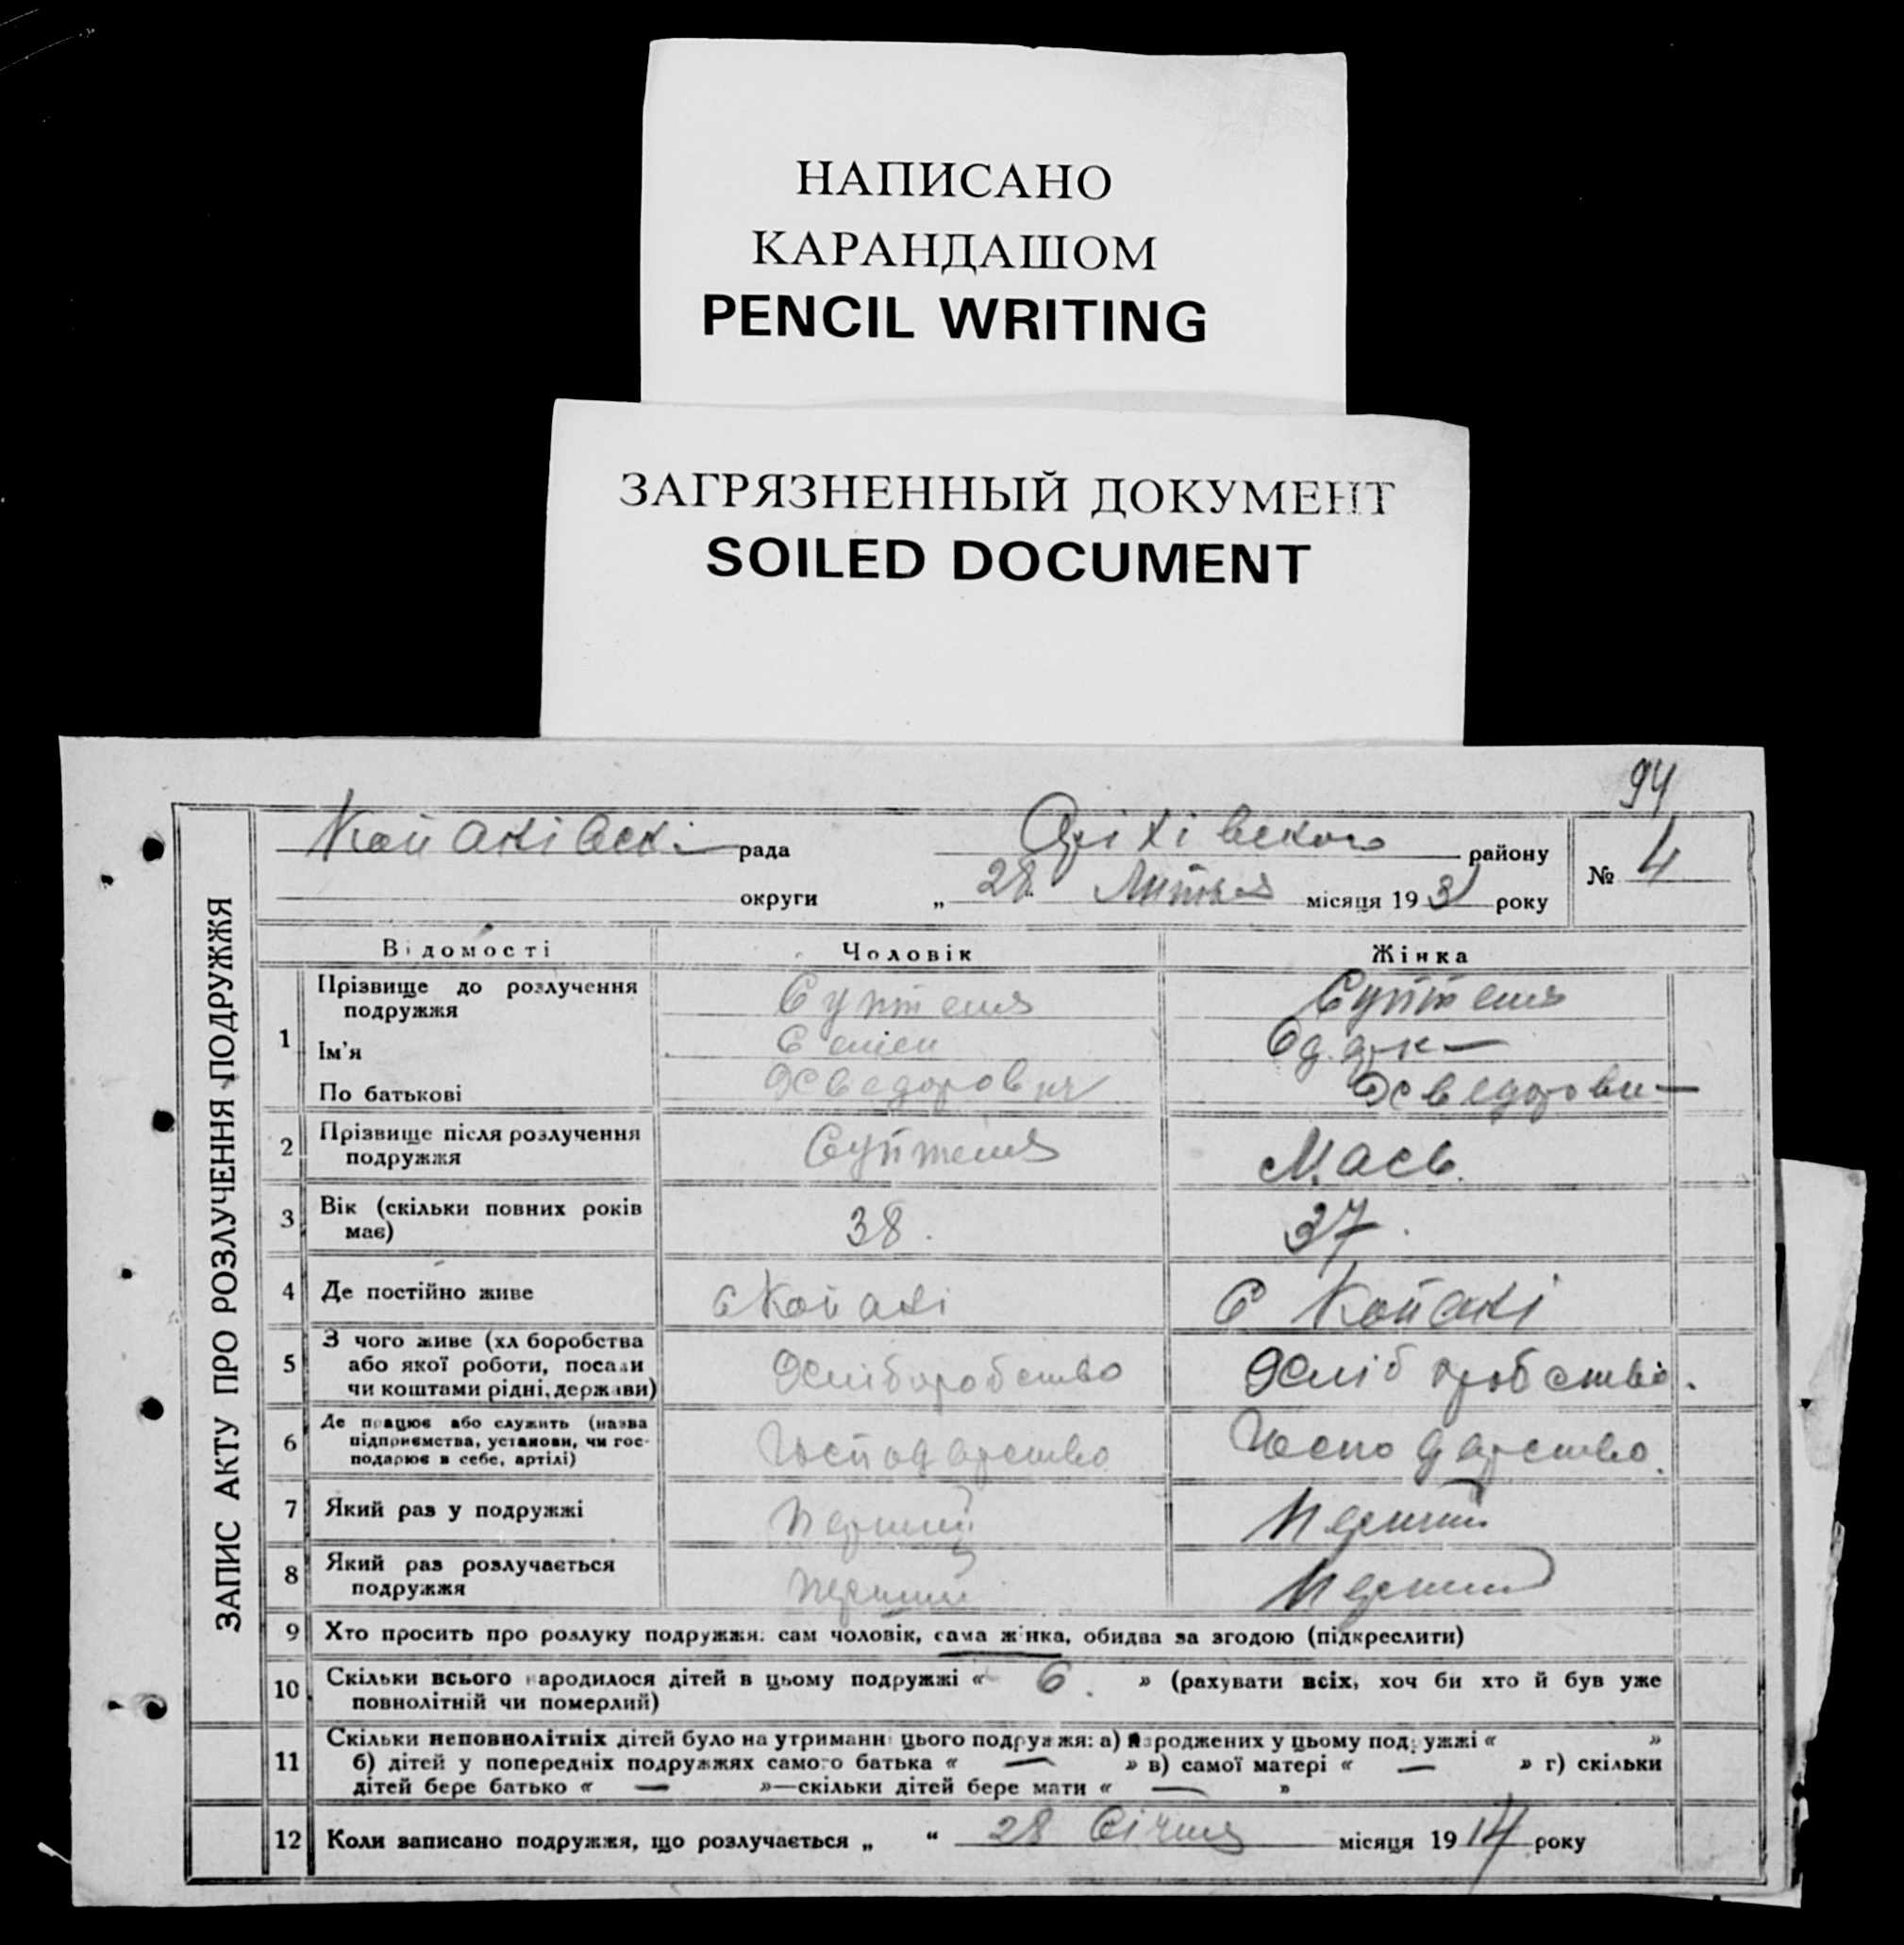 НАПИСАНО
КАРАНДАШОМ
PENCIL WRITING
ЗАГРЯЗНЕННЫЙ ДОКУМЕНТ
SOILED DOCUMENT
94
ЗАПИС АКТУ ПРО РОЗЛУЧЕННЯ ПОДРУЖЖЯ
рада району № 4
округи „ 28 місяця 1931 року
Відомості Чоловік Жінка
1 Прізвище до розлучення
подружжя
Ім'я Семен
По батькові
2 Прізвище після розлучення
подружжя Мась.
3 Вік (скільки повних років
має) 38. 37.
4 Де постійно живе с Копані С Копані
5 З чого живе (хліборобства
або якої роботи, посади
чи коштами рідні, держави) Хліборобство Хліборобство.
6 Де працює або служить (назва
підприємства, установи, чи гос-
подарює в себе, артілі) Господарство Господарство.
7 Який раз у подружжі Перший Перший
8 Який раз розлучається
подружжя перший Перший
9 Хто просить про розлуку подружжя: сам чоловік, сама жінка, обидва за згодою (підкреслити)
10 Скільки всього народилося дітей в цьому подружжі « 6. » (рахувати всіх, хоч би хто й був уже
повнолітній чи померлий)
11 Скільки неповнолітніх дітей було на утриманні цього подружжя: а) народжених у цьому подружжі « »
б) дітей у попередніх подружжях самого батька « — » в) самої матері « — » г) скільки
дітей бере батько « — »—скільки дітей бере мати « — »
12 Коли записано подружжя, що розлучається „ “ 28 Січня місяця 1914 року